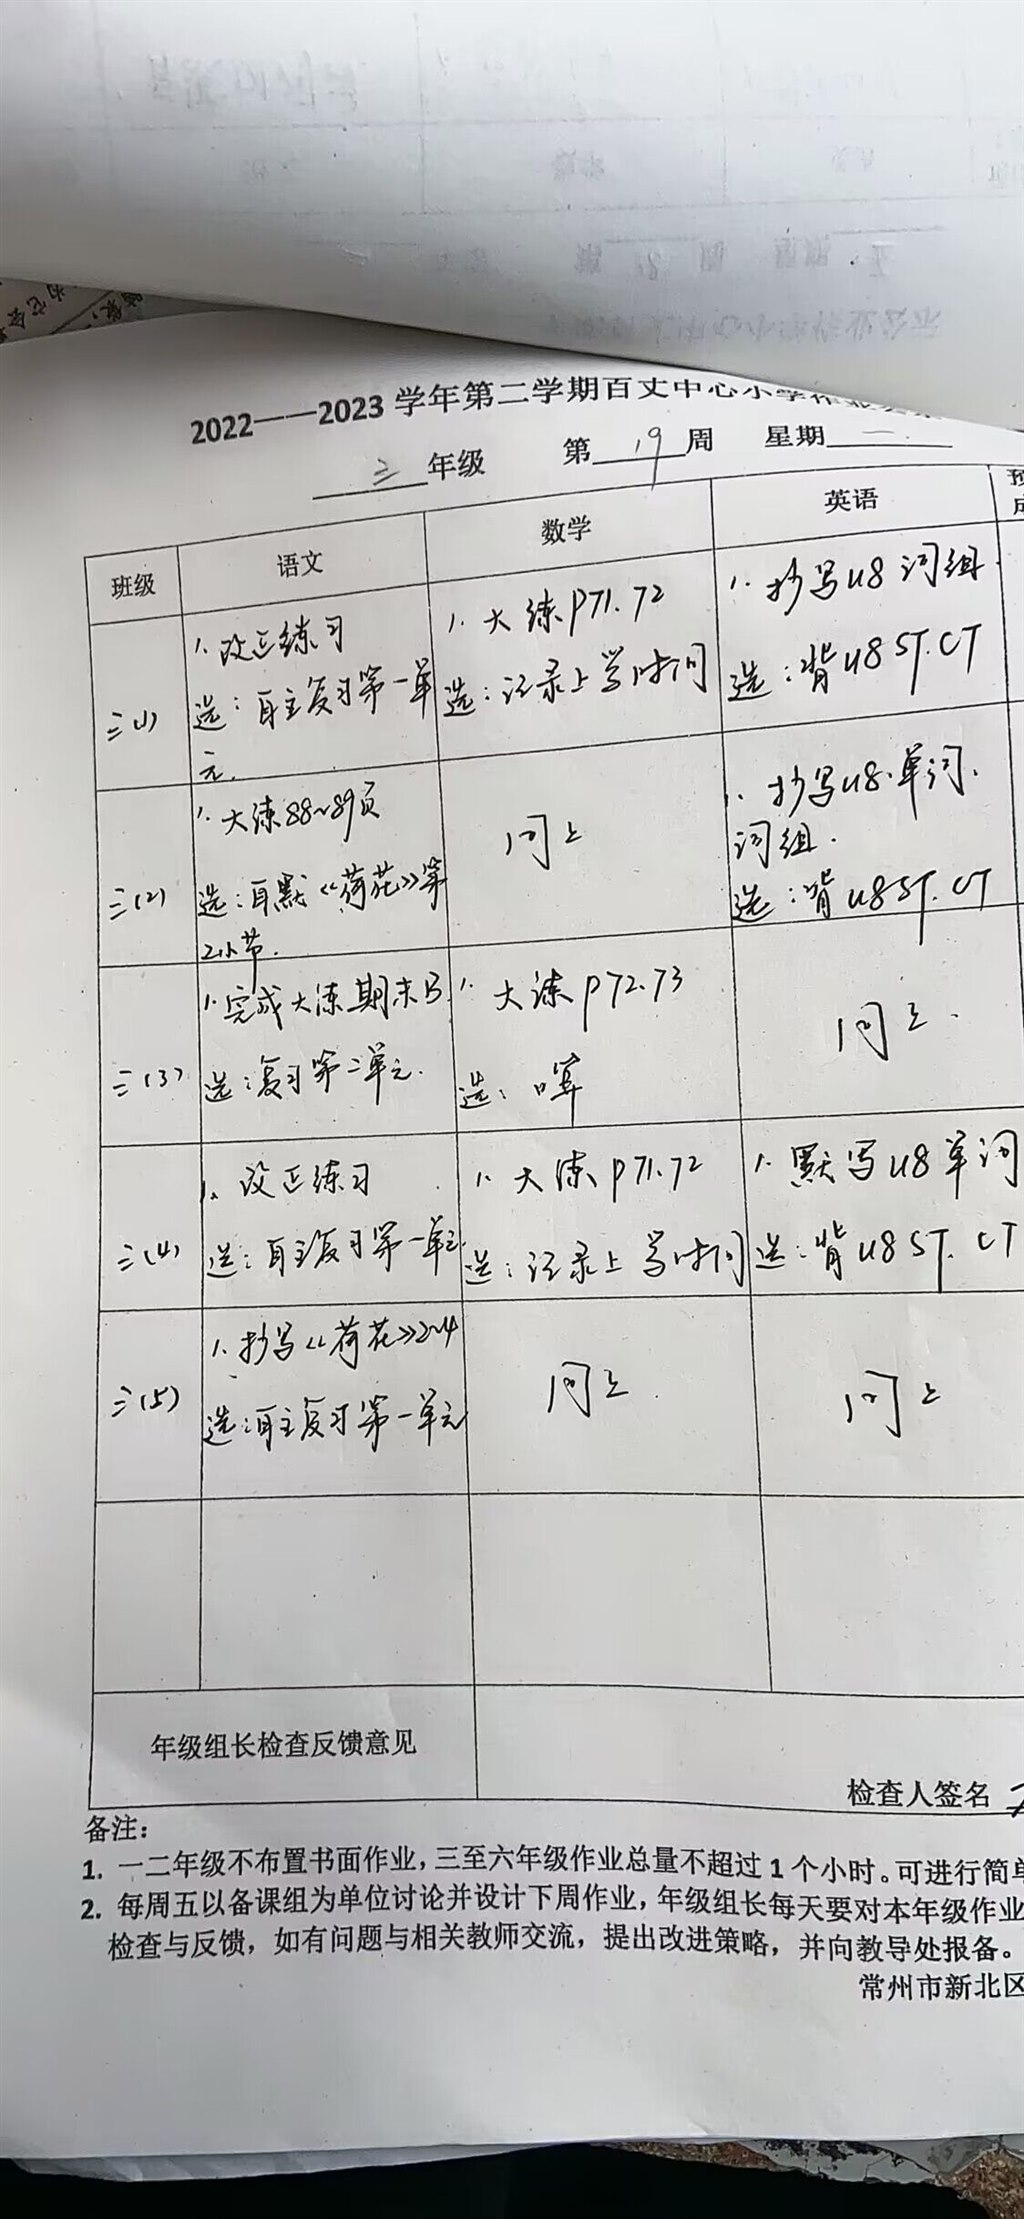 2022——2023 学年第二学期百丈中心小学作业
三 年级 第 19 周 星期 一
班级 语文 数学 英语
三(1)
1. 改正练习
选：自主复习第一单
元.
1. 大练 P71. 72
选：记录上学时间
1. 抄写 U8 词组.
选：背 U8 ST. CT
三(2)
1. 大练88~89页
选：自默《荷花》第
2小节.
同上
1. 抄写 U8. 单词、
词组.
选：背 U8 ST. CT
三(3)
1. 完成大练期末B.
选：复习第二单元.
1. 大练 P72. 73
选：口算
同上.
三(4)
1. 改正练习
选：自主复习第一单元.
1. 大练 P71. 72
选：记录上学时间
1. 默写 U8 单词
选：背 U8 ST. CT
三(5)
1. 抄写《荷花》2~4
选：自主复习第一单元
同上.
同上
年级组长检查反馈意见
检查人签名
备注：
1. 一二年级不布置书面作业，三至六年级作业总量不超过 1 个小时。可进行简单
2. 每周五以备课组为单位讨论并设计下周作业，年级组长每天要对本年级作业
检查与反馈，如有问题与相关教师交流，提出改进策略，并向教导处报备。
常州市新北区